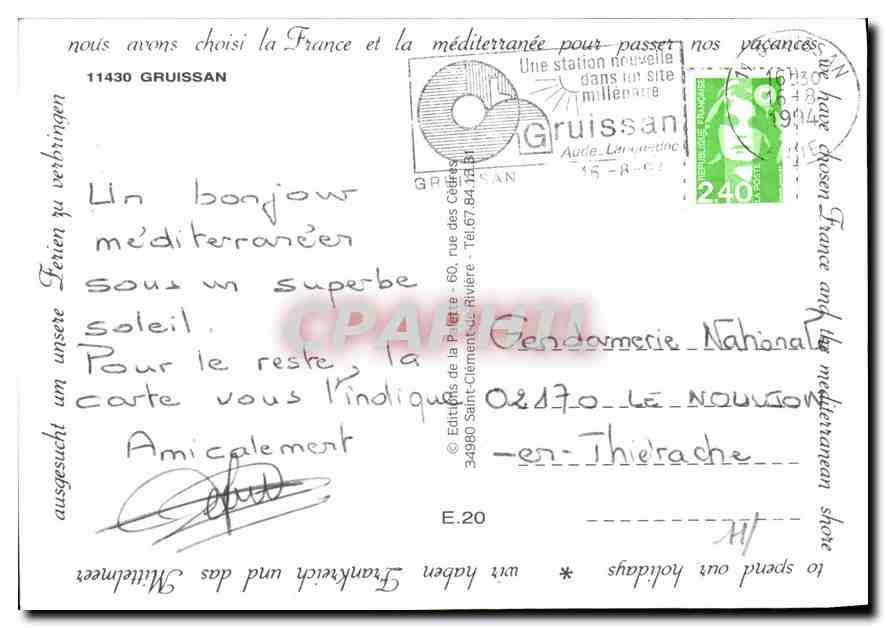 nous avons choisi la France et la méditerranée pour passer nos vacances
we have chosen France and the mediterranean shore
to spend our holidays * wir haben Frankreich und das Mittelmeer
ausgesucht um unsere Ferien zu verbringen
11430 GRUISSAN
Une station nouvelle
dans un site
millénaire
Gruissan
Aude-Languedoc
GRUISSAN
16-8-94
16H30
16-8
1994
AUDE
REPUBLIQUE FRANÇAISE
2,40
LA POSTE
Un bonjour
méditerranéen
sous un superbe
soleil.
Pour le reste, la
carte vous l'indique
Amicalement
© Editions de la Palette - 60, rue des Cèdres
34980 Saint-Clément-de-Rivière - Tél. 67.84.13.31
CPAPHIL
Gendarmerie Nationale
02170 LE NOUVION
-en-Thiérache
E.20